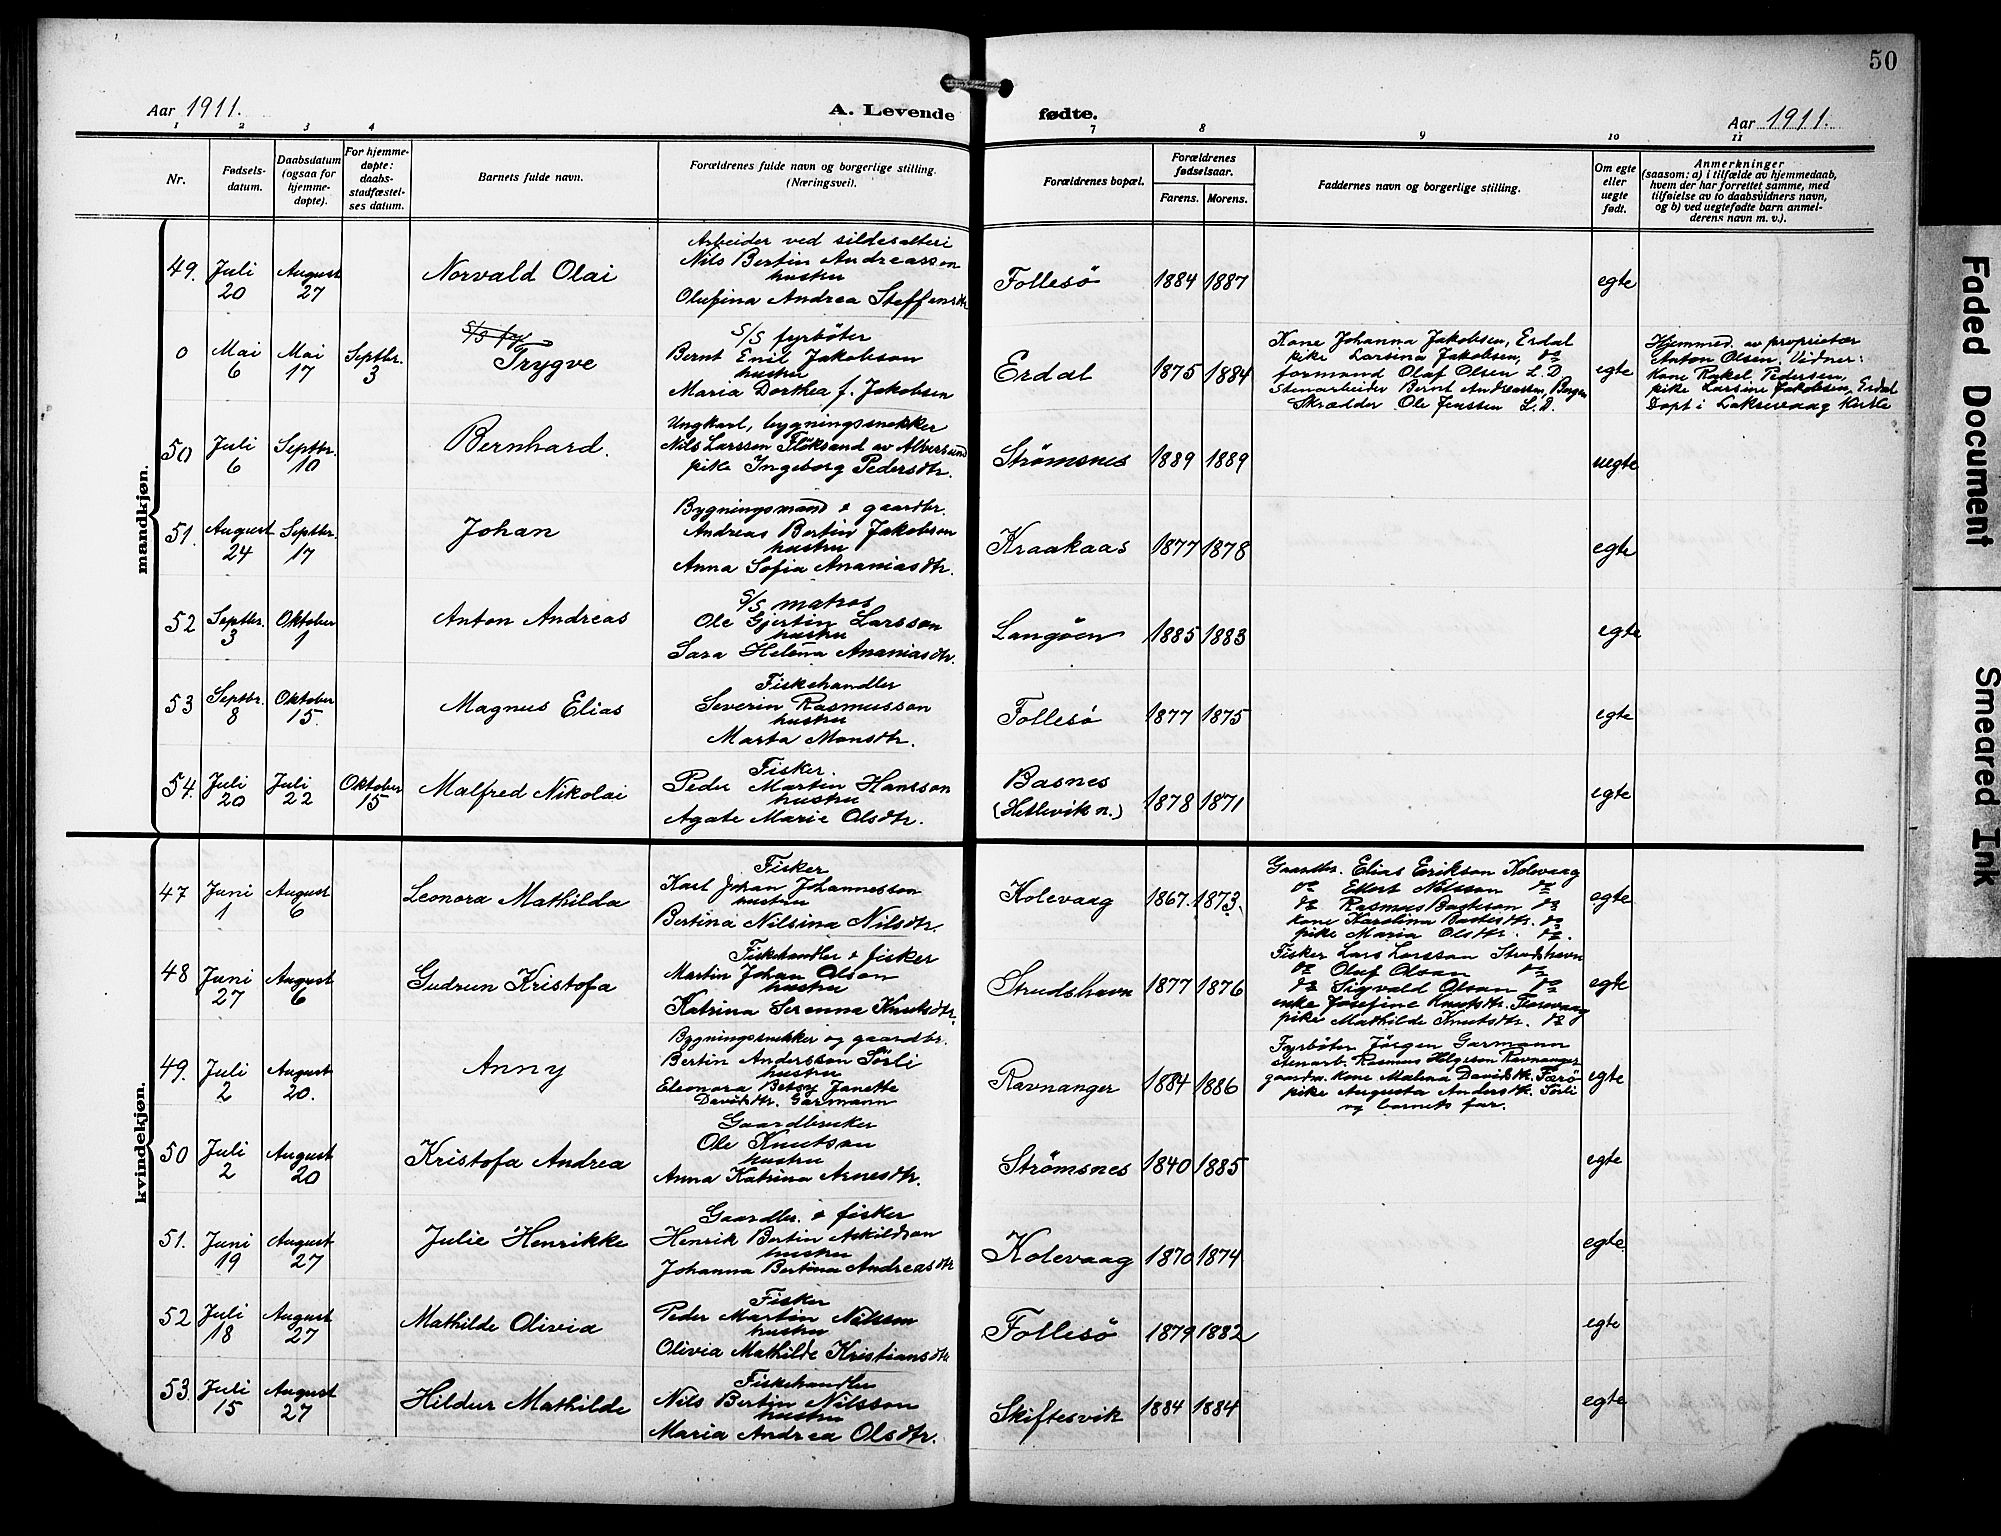 50
Aar 1911.
A. Levende fødte.
Aar 1911.
1 2 3 4 7 8 9 10 11
Nr.
Fødsels-
datum.
Daabsdatum
(ogsaa for
hjemme-
døpte).
For hjemme-
døpte:
daabs-
stadfæstel-
ses datum.
Barnets fulde navn.
Forældrenes fulde navn og borgerlige stilling.
(Næringsvei).
Forældrenes bopæl.
Forældrenes
fødselsaar.
Farens. Morens.
Faddernes navn og borgerlige stilling.
Om egte
eller
uegte
født.
Anmerkninger
(saasom: a) i tilfælde av hjemmedaab,
hvem der har forrettet samme, med
tilføielse av to daabsvidners navn,
og b) ved uegtefødte barn anmel-
derens navn m. v.).
mandkjøn.
49. Juli 20 August 27 Norvald Olai
Arbeider ved sildesalteri
Nils Bertin Andreasson
hustru
Olufina Andrea Steffensdtr
Follesö 1884 1887 egte
0 Mai 6 Mai 17 Septbr. 3 Trygve
S/S fyrböter
Bernt Emil Jakobson
hustru
Maria Dorthea f. Jakobsen
Erdal 1875 1884
Kone Johanna Jakobsen, Erdal
pike Larsina Jakobsen, do
formand Olaf Olsen L.D.
Stenarbeider Bernt Andreassen, Bergen
Skrædder Ole Jenssen L.D.
egte
Hjemmed. av proprietær
Anton Olsen. Vidner:
Kone Rakel Pedersen,
pike Larsine Jakobsen, Erdal
Döpt i Laksevaag Kirke
50 Juli 6 Septbr. 10 Bernhard.
Ungkarl, bygningssnekker
Nils Larssen Flöksand av Alversund
pike Ingeborg Pedersdtr.
Strømsnes 1889 1889 uegte
51. August 24 Septbr. 17 Johan
Bygningsmand & gaardbr.
Andreas Bertin Jakobson
hustru
Anna Sofia Ananiasdtr.
Kraakaas 1877 1878 egte
52 Septbr. 3 Oktober 1 Anton Andreas
S/S matros
Ole Gjertin Larsson
hustru
Sara Helena Ananiasdtr.
Langöen 1885 1883 egte
53 Septbr. 8 Oktober 15. Magnus Elias
Fiskehandler
Severin Rasmusson
hustru
Marta Monsdtr.
Follesö 1877 1875 egte
54. Juli 20 Juli 22 Oktober 15 Malfred Nikolai
Fisker.
Peder Martin Hansson
hustru
Agate Marie Olsdtr.
Basnes
(Hetlevik n.) 1878 1871 egte
kvindekjøn.
47 Juni 1 August 6 Leonora Mathilda
Fisker
Karl Johan Johannesson
hustru
Bertina Nilsina Nilsdtr.
Kolevaag 1867. 1873.
Gaardbr. Elias Erikson Kolevaag
do Eilert Nilsson do
do Rasmus Basteson do
kone Karolina Bastesdtr. do
pike Maria Olsdtr. do.
egte
48 Juni 27 August 6 Gudrun Kristofa
Fiskehandler & fisker
Martin Johan Olson
hustru
Katrina Serenna Knutsdtr.
Strudshavn 1877 1876
Fisker Lars Larsson Strudshavn
do Oluf Olson do
do Sigvald Olson do
enke Josefine Knutsdtr. Florvaag
pike Mathilde Knutsdtr. do
egte
49. Juli 2 August 20. Anny
Bygningssnekker og gaardbr.
Bertin Andersson Sørli
hustru
Eleonora Betsy Janette
Davidsdtr. Garmann
Ravnanger 1884 1886
Fyrböter Jörgen Garmann
stenarb. Rasmus Helgeson Ravnanger
gaardm. kone Malena Davidsdtr. Færö
pike Augusta Andersdtr. Sørli
og barnets far.
egte
50 Juli 2 August 20 Kristofa Andrea
Gaardbruker
Ole Knutson
hustru
Anna Katrina Arnesdtr.
Strømsnes 1840 1885 egte
51. Juni 19 August 27 Julie Henrikke
Gaardbr. & fisker
Henrik Bertin Askildson
hustru
Johanna Bertina Andreasdtr
Kolevaag 1870 1874 egte.
52 Juli 18 August 27 Mathilde Olivia
Fisker
Peder Martin Nilsson
hustru
Olivia Mathilde Kristiansdtr
Follesö 1879 1882 egte
53. Juli 15 August 27 Hildur Mathilde
Fiskehandler
Nils Bertin Nilsson
hustru
Maria Andrea Olsdtr.
Skiftesvik 1884 1884 egte
Faded Document
Smeared Ink